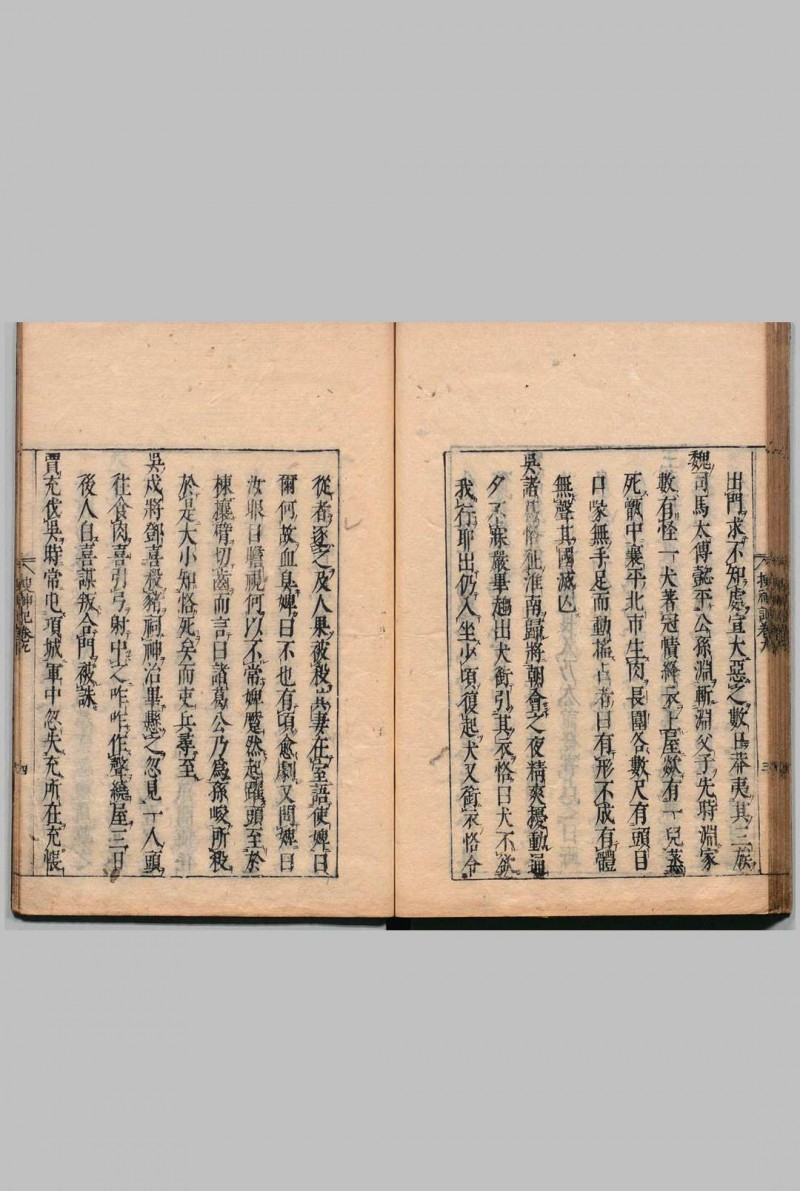 出門求不知處宣大惡之數日莽夷其三族
魏司馬太傅懿平公孫淵斬淵父子先時淵家
數有怪一犬著冠幘絳衣上屋欻有一兒蒸
死甑中襄平北市生肉長圍各數尺有頭目
口喙無手足而動搖占者曰有形不成有體
無聲其國滅亡
吳諸葛恪征淮南歸將朝會之夜精爽擾動通
夕不寐嚴畢趨出犬銜引其衣恪曰犬不欲
我行耶出仍入坐少頃復起犬又銜衣恪令
從者逐之及入果被殺其妻在室語使婢曰
爾何故血臭婢曰不也有頃愈劇又問婢曰
汝眼目瞻視何以不常婢蹷然起躍頭至於
棟攘臂切齒而言曰諸葛公乃爲孫峻所殺
於是大小知恪死矣而吏兵尋至
吳戍將鄧喜殺猪祠神治畢懸之忽見一人頭
往食肉喜引弓射中之咋咋作聲繞屋三日
後人白喜謀叛合門被誅
賈充伐吳時常屯項城軍中忽失充所在充帳
搜神記卷九
三
搜神記卷九
四